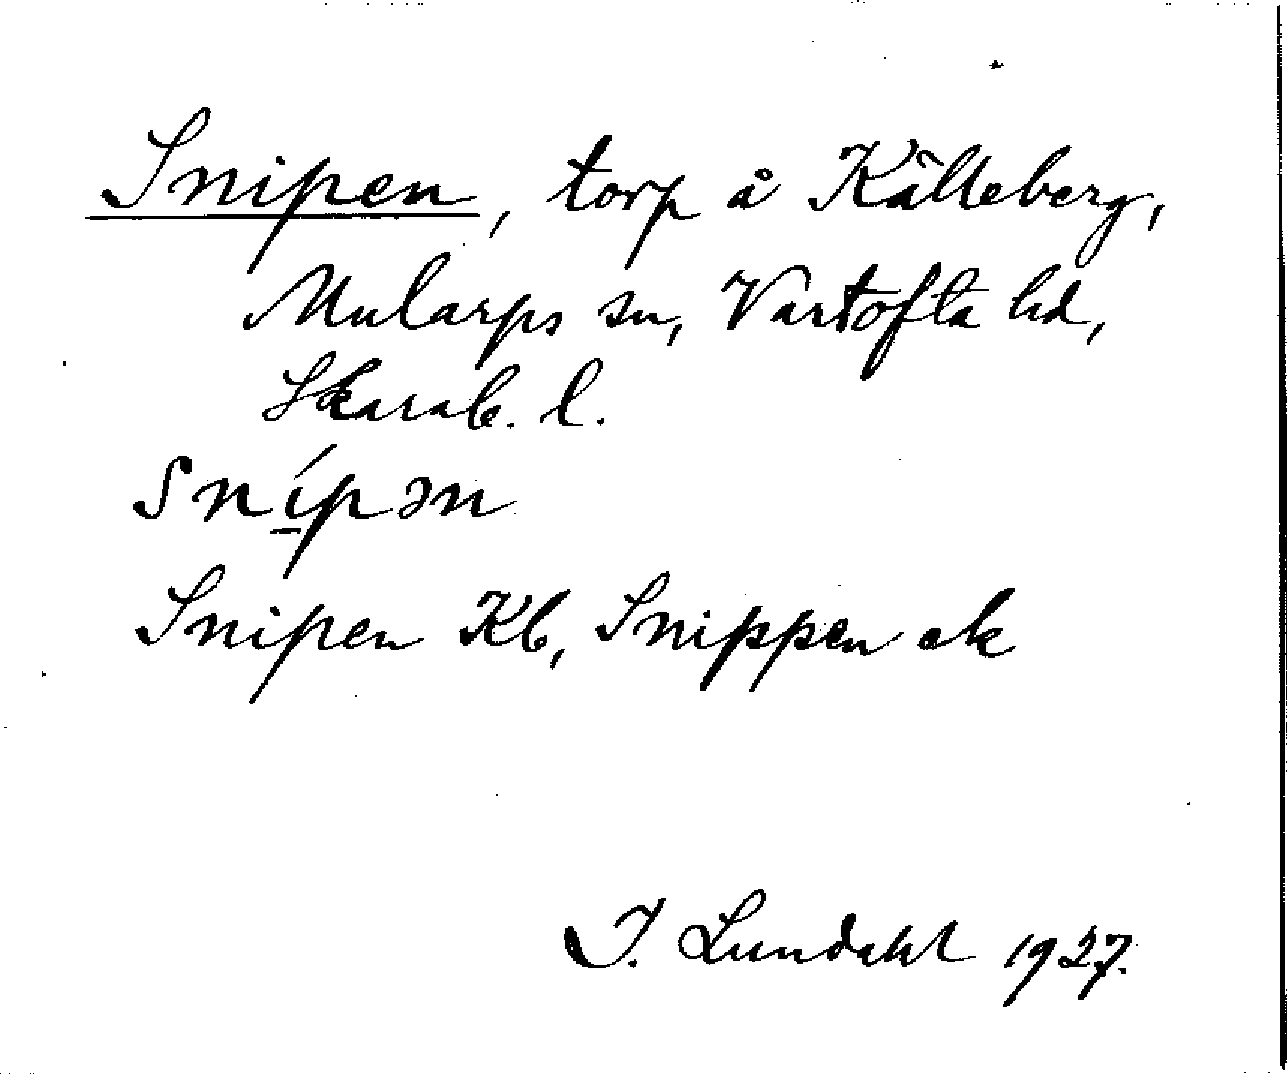 Snipen, torp å Källeberg,
Mularps sn, Vartofta hd,
Skarab. l.
sní̲pən
Snipen Kb, Snippen ek
I. Lundahl 1927.